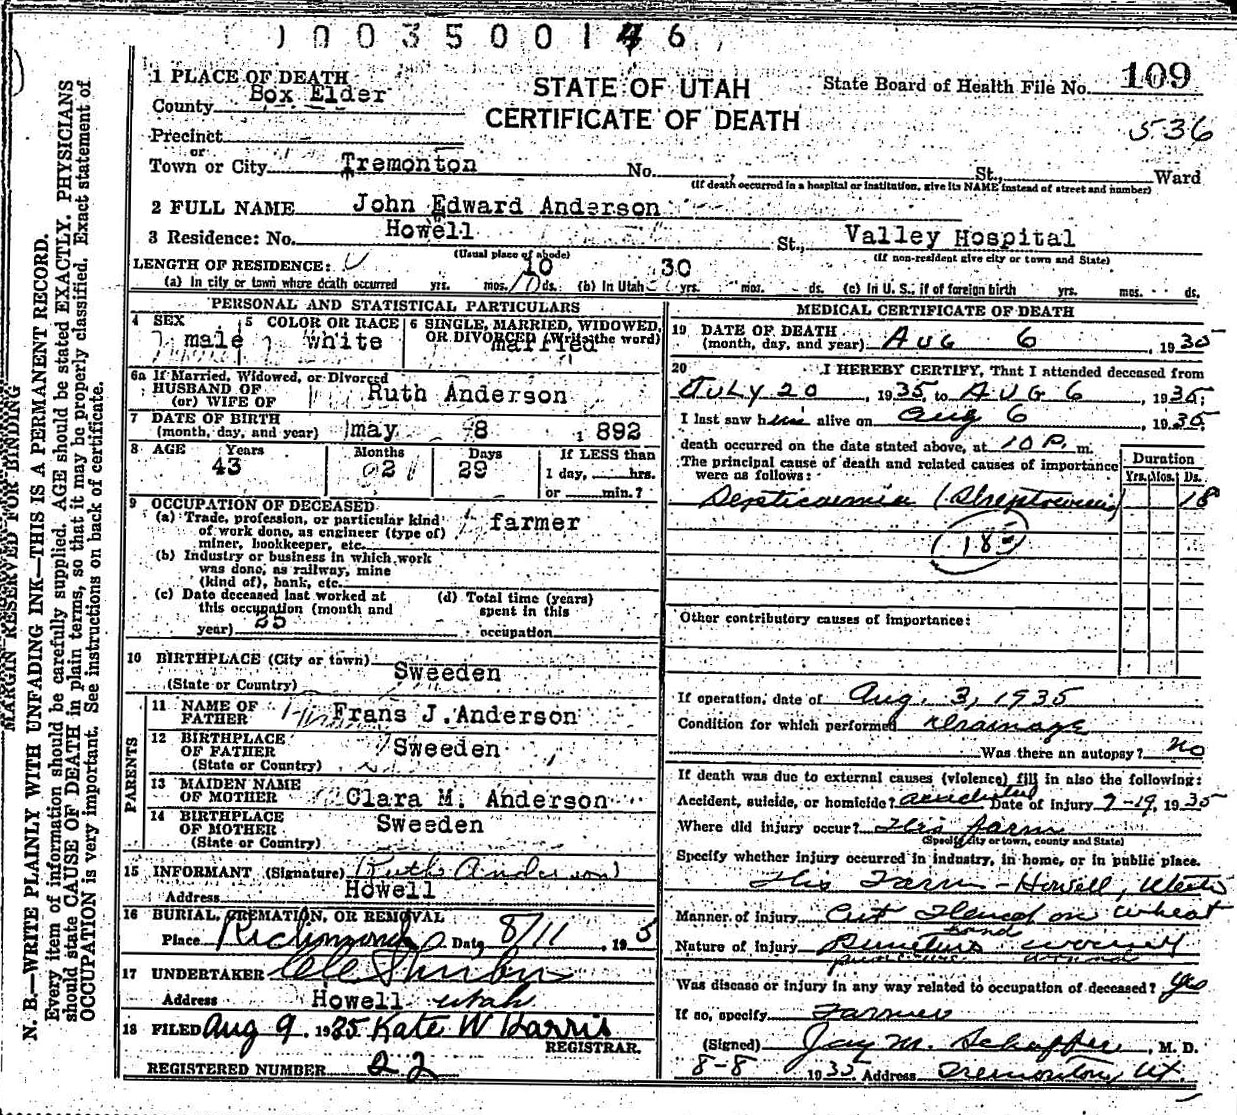 0 0 3 5 0 0 1 4 6
1 PLACE OF DEATH
County Box Elder
STATE OF UTAH
CERTIFICATE OF DEATH
State Board of Health File No. 109
536
Precinct
or
Town or City Tremonton No. St., Ward
(If death occurred in a hospital or institution, give its NAME instead of street and number)
2 FULL NAME John Edward Anderson
3 Residence: No. Howell St., Valley Hospital
(Usual place of abode) (If non-resident give city or town and State)
LENGTH OF RESIDENCE: 10 30
(a) In city or town where death occurred yrs. mos. ds. (b) In Utah yrs. mos. ds. (c) In U. S., if of foreign birth yrs. mos. ds.
PERSONAL AND STATISTICAL PARTICULARS
4 SEX male
5 COLOR OR RACE white
6 SINGLE, MARRIED, WIDOWED, OR DIVORCED (Write the word) married
6a If Married, Widowed, or Divorced
HUSBAND OF
(or) WIFE OF Ruth Anderson
7 DATE OF BIRTH
(month, day, and year) may 8 1892
8 AGE Years Months Days If LESS than
43 02 29 1 day, hrs.
or min.?
9 OCCUPATION OF DECEASED
(a) Trade, profession, or particular kind
of work done, as engineer (type of)
miner, bookkeeper, etc. farmer
(b) Industry or business in which work
was done, as railway, mine
(kind of), bank, etc.
(c) Date deceased last worked at
this occupation (month and
year)
(d) Total time (years)
spent in this
occupation
10 BIRTHPLACE (City or town) Sweeden
(State or Country)
PARENTS
11 NAME OF
FATHER Frans J. Anderson
12 BIRTHPLACE
OF FATHER Sweeden
(State or Country)
13 MAIDEN NAME
OF MOTHER Clara M. Anderson
14 BIRTHPLACE
OF MOTHER Sweeden
(State or Country)
15 INFORMANT (Signature) Ruth Anderson
Address Howell
16 BURIAL, CREMATION, OR REMOVAL
Place Richmond Date 8/11, 1935
17 UNDERTAKER
Address Howell Utah
18 FILED Aug 9 1935 Kate W Harris
REGISTRAR.
REGISTERED NUMBER 22
MEDICAL CERTIFICATE OF DEATH
19 DATE OF DEATH
(month, day, and year) AUG 6, 1935
20 I HEREBY CERTIFY, That I attended deceased from
JULY 20, 1935 to AUG 6, 1935
I last saw him alive on Aug 6, 1935
death occurred on the date stated above, at 10 P. m.
The principal cause of death and related causes of importance
were as follows:
Duration
Yrs. Mos. Ds.
Septicaemia 18
Other contributory causes of importance:
If operation, date of Aug. 3, 1935
Condition for which performed drainage
Was there an autopsy? no
If death was due to external causes (violence) fill in also the following:
Accident, suicide, or homicide? accidental Date of injury 7-19, 1935
Where did injury occur? His farm
(Specify city or town, county and State)
Specify whether injury occurred in industry, in home, or in public place.
His Farm - Howell, Utah
Manner of injury Cut Hand on wheat
Nature of injury Puncture wound
puncture wound
Was disease or injury in any way related to occupation of deceased? yes
If so, specify Farmer
(Signed) Jay M. Schaffer, M. D.
8-8 1935 Address Tremonton, Ut.
MARGIN RESERVED FOR BINDING
N. B.—WRITE PLAINLY WITH UNFADING INK—THIS IS A PERMANENT RECORD.
Every item of information should be carefully supplied. AGE should be stated EXACTLY. PHYSICIANS
should state CAUSE OF DEATH in plain terms, so that it may be properly classified. Exact statement of
OCCUPATION is very important. See instructions on back of certificate.